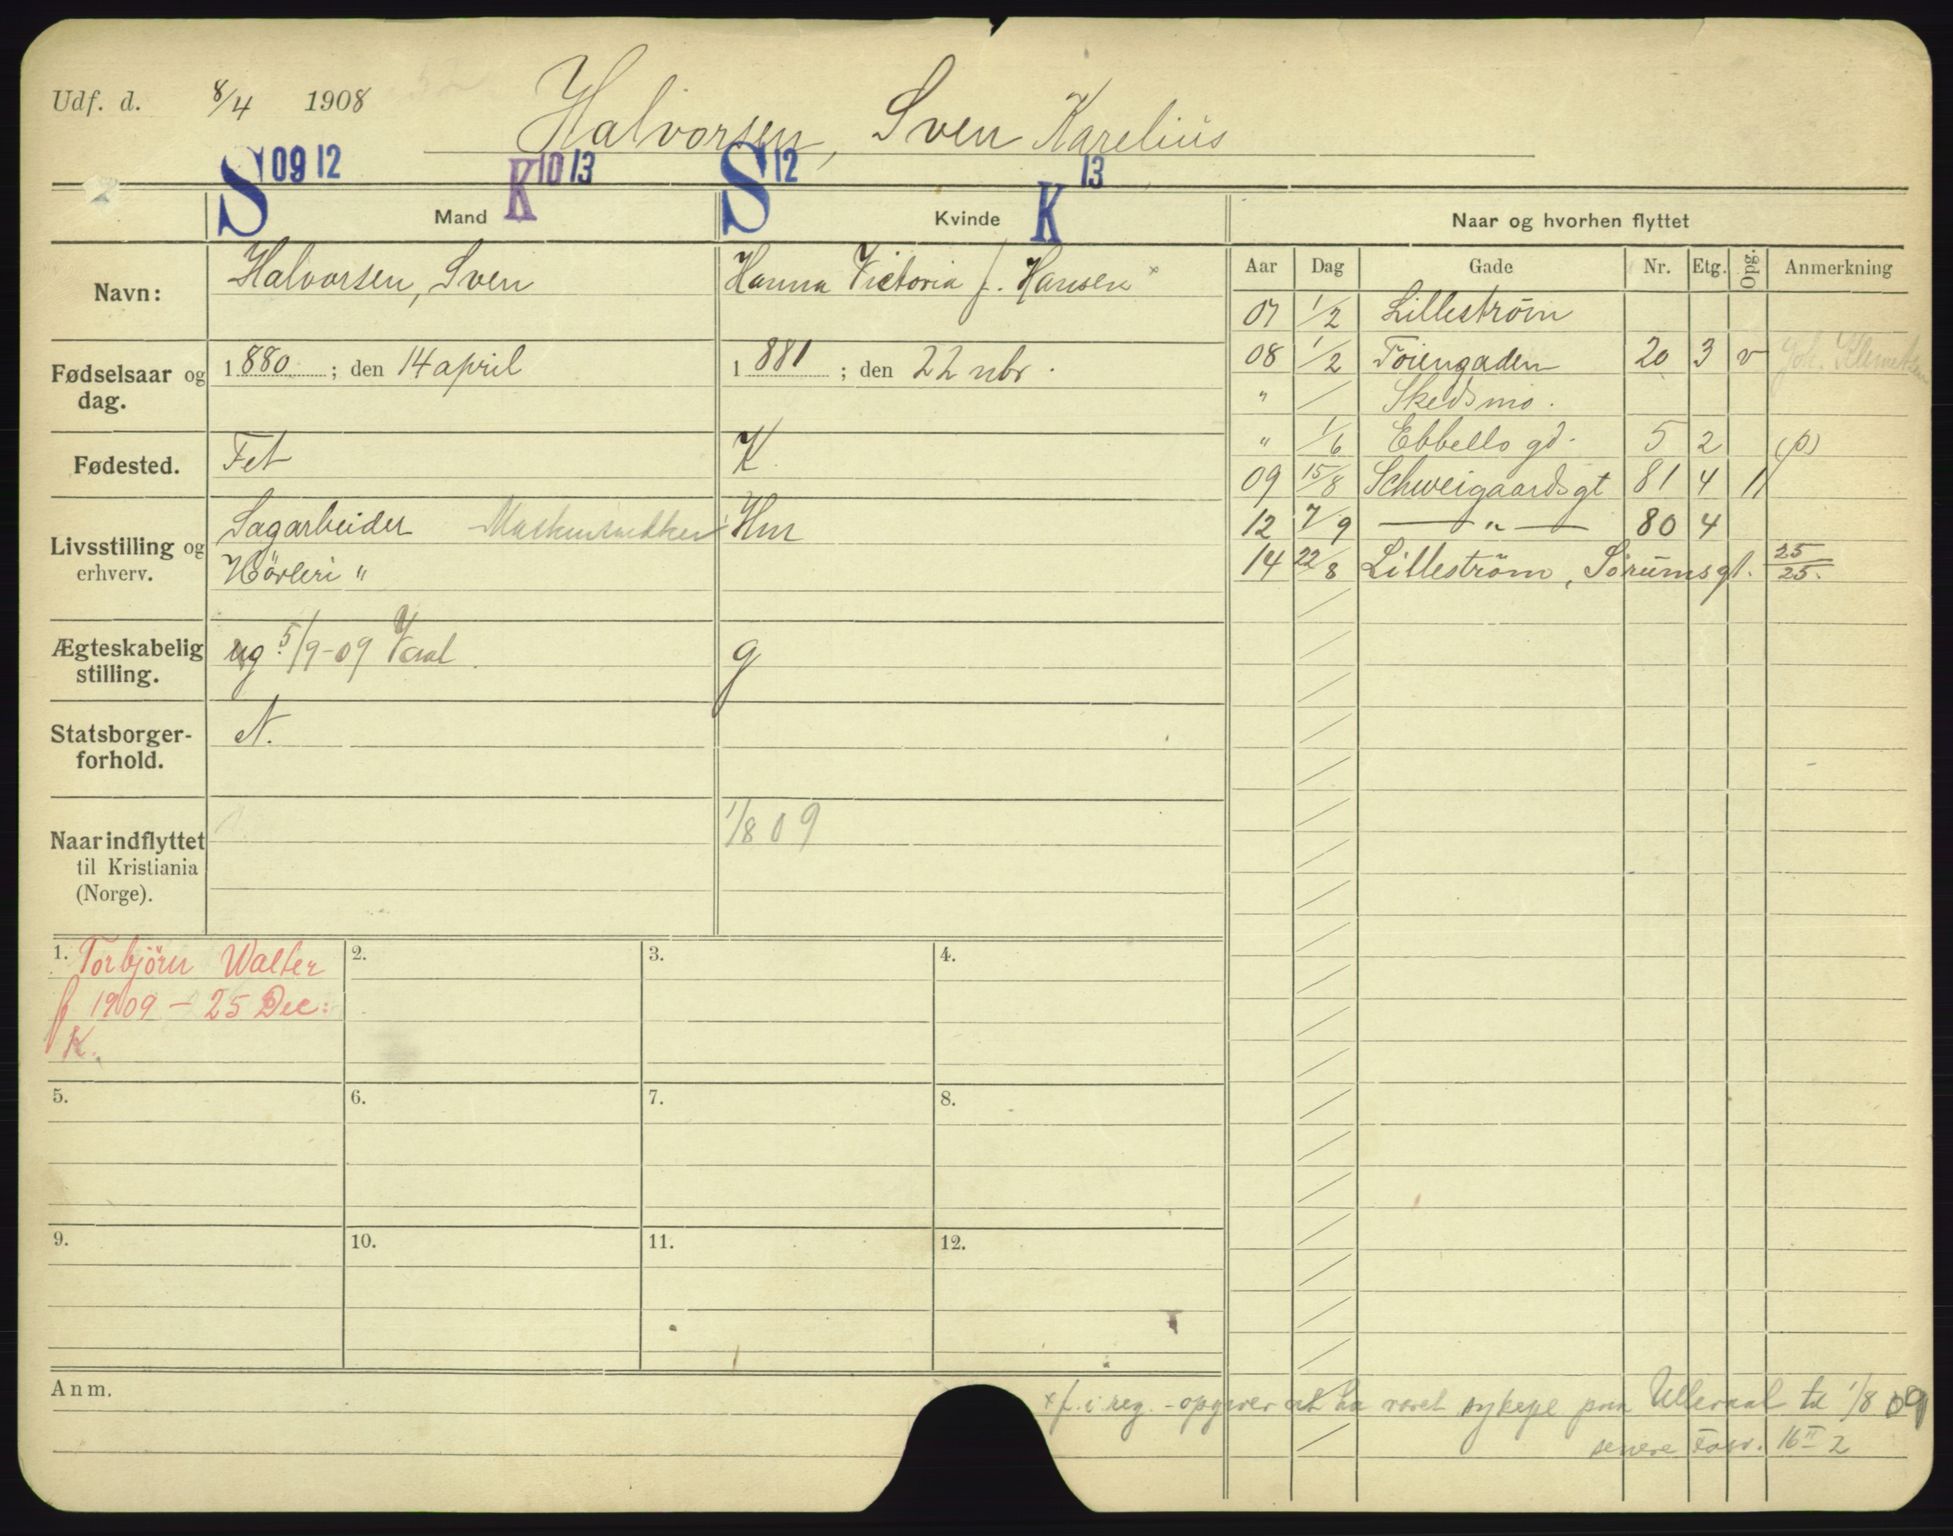 Udf. d. 8/4 1908
Halvorsen, Sven Karelius
S 09 12 K 10 13 S 12 K 13
Mand Kvinde Naar og hvorhen flyttet
Aar Dag Gade Nr. Etg. Opg. Anmerkning
Navn: Halvorsen, Sven Hanna Victoria f. Hansen x
Fødselsaar og dag. 1880 ; den 14 april 1881 ; den 22 nbr.
Fødested. Fet K.
Livsstilling og erhverv. Sagarbeider Hm
Hövleri "
Ægteskabelig stilling. ug. 5/9-09 g
Statsborger-
forhold. N.
Naar indflyttet
til Kristiania
(Norge). 1/8 09
07 1/2 Lilleström
08 1/2 Töiengaden 20 3 v Joh. Klemetsen
" / Skedsmo.
" 1/6 Ebbells gd. 5 2 (p)
09 15/8 Schweigaardsgt 81 4 11
12 7/9 — " — 80 4
14 22/8 Lilleström, Sörumsgt. 25/25.
1. Torbjörn Walter
f 1909 - 25 Dec:
K.
2.
3.
4.
5.
6.
7.
8.
9.
10.
11.
12.
Anm.
x f. i reg. - opgiver at ha været sykepl paa Ullevaal til 1/8 09
senere 16 II 2